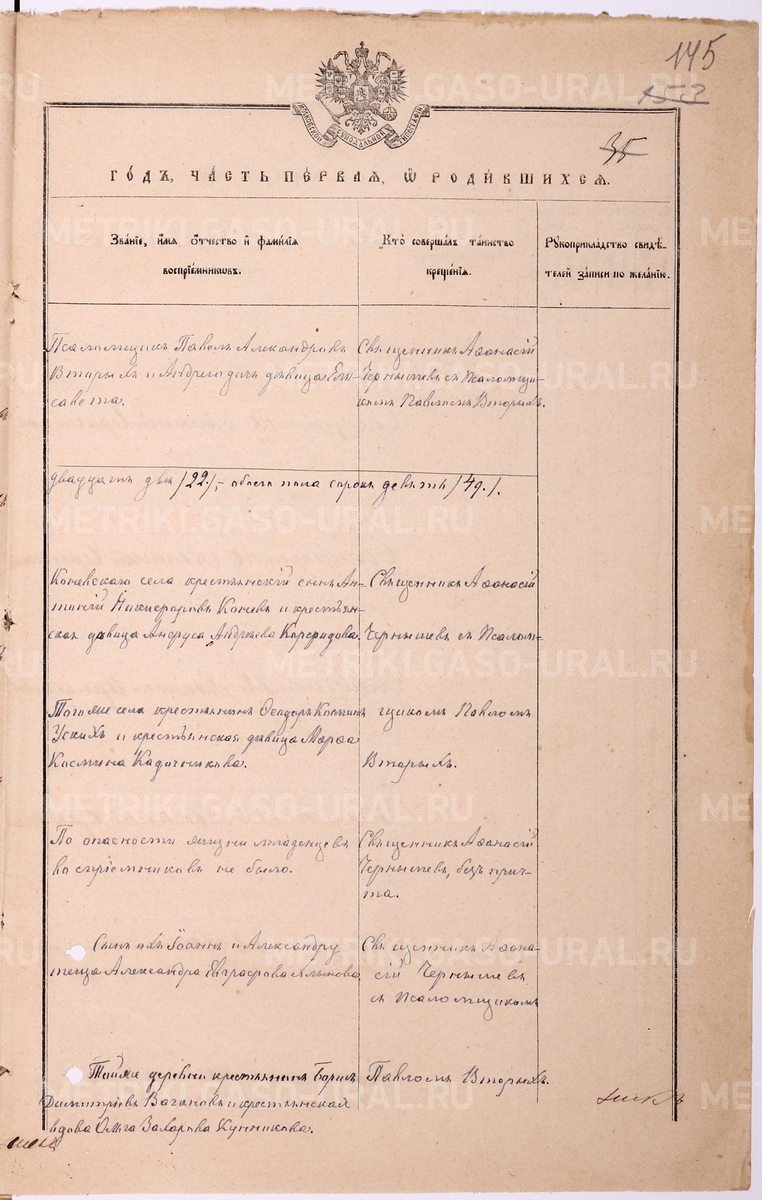 145
153
35
МОСКОВСКОЙ СѴНОДАЛЬНОЙ ТИПОГРАФІИ
ГОДЪ, ЧАСТЬ ПЕРВАЯ, Ѡ РОДИВШИХСЯ.
Званіе, имя отчество и фамилія
воспріемниковъ.
Кто совершалъ таинство
крещенія.
Рукоприкладство свидѣ-
телей записи по желанію.
Псаломщикъ Павелъ Александровъ
Вторыхъ и дочь дѣвица Ели-
савета.
Священникъ Аѳанасій
Чернышевъ съ псаломщи-
комъ Павломъ Вторыхъ.
двадцать двѣ /22/, - обоего пола сорокъ девять /49/.
Коневскаго села крестьянскій сынъ Ан-
тоній Никифоровъ Коневъ и крестьян-
ская дѣвица Андреева
Священникъ Аѳанасій
Чернышевъ съ Псалом-
щикомъ Павломъ
Вторыхъ.
Того же села крестьянинъ Ѳеодоръ Косминъ
Ускихъ и крестьянская дѣвица Марѳа
Космина Кадочникова.
По опасности жизни младенцевъ
воспріемниковъ не было.
Священникъ Аѳанасій
Чернышевъ, безъ прич-
та.
Сынъ ихъ Іоаннъ и Александру
Александра Евграфова
Священникъ Аѳана-
сій Чернышевъ
съ Псаломщикомъ
Павломъ Вторыхъ.
Тойже деревни крестьянинъ Борисъ
Димитріевъ и крестьянская
вдова Ольга Захарова Кунникова.
METRIKI.GASO-URAL.RU